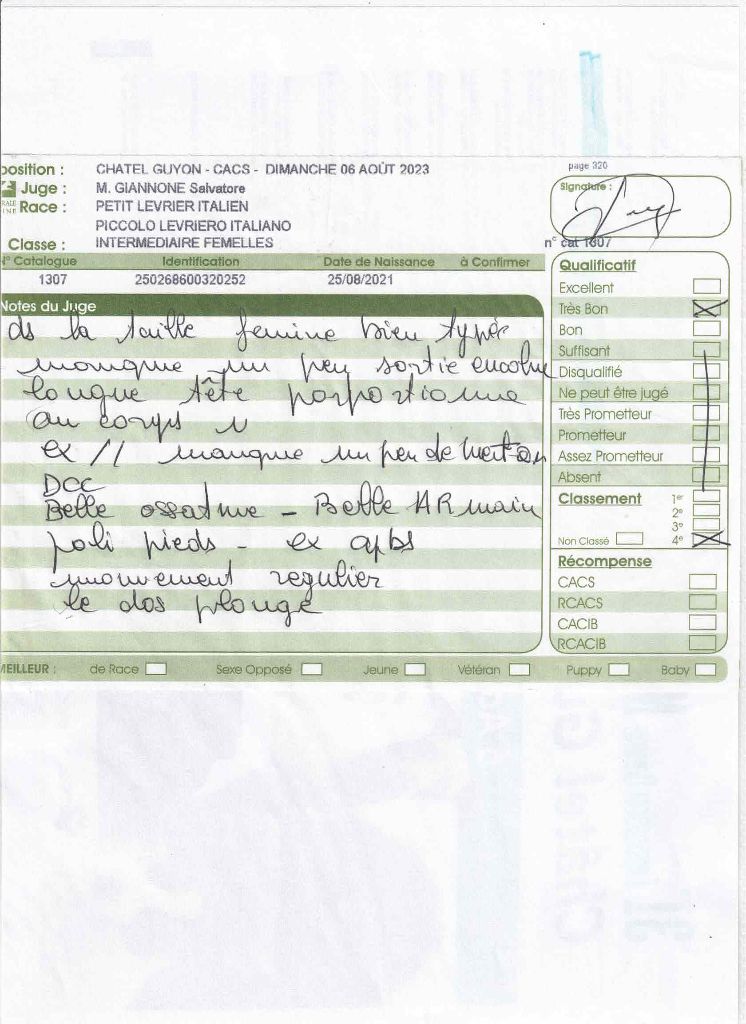 position : CHATEL GUYON - CACS - DIMANCHE 06 AOÛT 2023
page 320
Juge : M. GIANNONE Salvatore
Signature :
Race : PETIT LEVRIER ITALIEN
PICCOLO LEVRIERO ITALIANO
Classe : INTERMEDIAIRE FEMELLES
n° cat 1307
N° Catalogue Identification Date de Naissance à Confirmer
1307 250268600320252 25/08/2021
Notes du Juge
ds la taille femine bien typée
manque un peu sortie encolure
longue tête porportionne
au corps
ex // manque un peu de menton
DCC
Belle ossature - Belle AR main
poli pieds - ex apbs
mouvement regulier
le dos plonge
Qualificatif
Excellent
Très Bon
Bon
Suffisant
Disqualifié
Ne peut être jugé
Très Prometteur
Prometteur
Assez Prometteur
Absent
Classement 1er
2e
3e
Non Classé 4e
Récompense
CACS
RCACS
CACIB
RCACIB
MEILLEUR : de Race Sexe Opposé Jeune Vétéran Puppy Baby